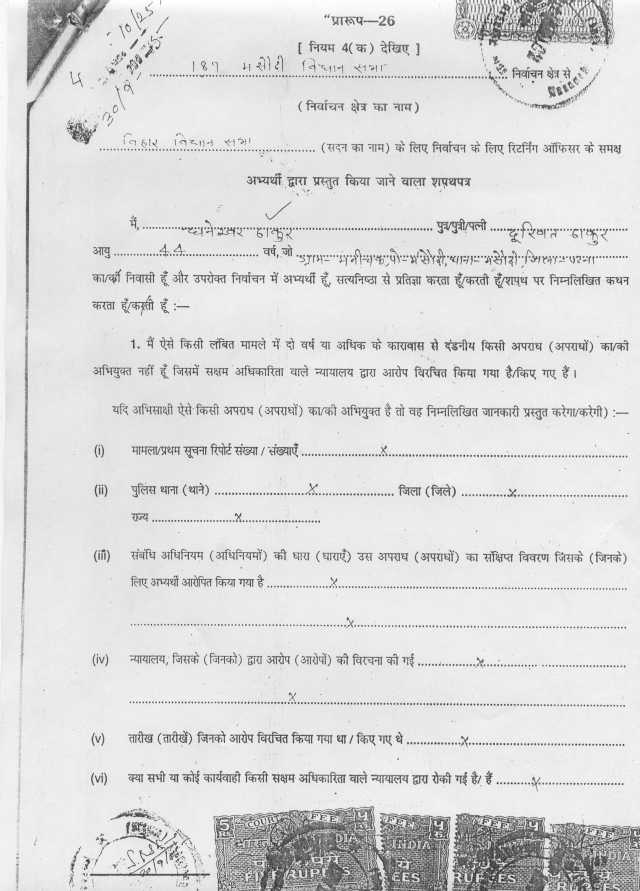 "प्रारूप—26
[ नियम 4(क) देखिए ]
4
30/9
187 मसौढी विधान सभा निर्वाचन क्षेत्र से
(निर्वाचन क्षेत्र का नाम)
विहार विधान सभा (सदन का नाम) के लिए निर्वाचन के लिए रिटर्निंग ऑफिसर के समक्ष
अभ्यर्थी द्वारा प्रस्तुत किया जाने वाला शपथपत्र
मैं, ठाकुर पुत्र/पुत्री/पत्नी ठाकुर
आयु 44 वर्ष, जो ग्राम- मनीचक, पो- मसौढी, थाना- मसौढी, जिला- पटना
का/की निवासी हूँ और उपरोक्त निर्वाचन में अभ्यर्थी हूँ, सत्यनिष्ठा से प्रतिज्ञा करता हूँ/करती हूँ/शपथ पर निम्नलिखित कथन
करता हूँ/करती हूँ :—
1. मैं ऐसे किसी लंबित मामले में दो वर्ष या अधिक के कारावास से दंडनीय किसी अपराध (अपराधों) का/की
अभियुक्त नहीं हूँ जिसमें सक्षम अधिकारिता वाले न्यायालय द्वारा आरोप विरचित किया गया है/किए गए हैं ।
यदि अभिसाक्षी ऐसे किसी अपराध (अपराधों) का/की अभियुक्त है तो वह निम्नलिखित जानकारी प्रस्तुत करेगा/करेगी) :—
(i) मामला/प्रथम सूचना रिपोर्ट संख्या / संख्याएँ x
(ii) पुलिस थाना (थाने) x जिला (जिले) x
राज्य x
(iii) संबंधि अधिनियम (अधिनियमों) की धारा (धाराएँ) उस अपराध (अपराधों) का संक्षिप्त विवरण जिसके (जिनके)
लिए अभ्यर्थी आरोपित किया गया है x
x
(iv) न्यायालय, जिसके (जिनको) द्वारा आरोप (आरोपों) की विरचना की गई x
x
(v) तारीख (तारीखें) जिनको आरोप विरचित किया गया था / किए गए थे x
(vi) क्या सभी या कोई कार्यवाही किसी सक्षम अधिकारिता वाले न्यायालय द्वारा रोकी गई है/ हैं x
COURT FEE
INDIA
FIVE RUPEES